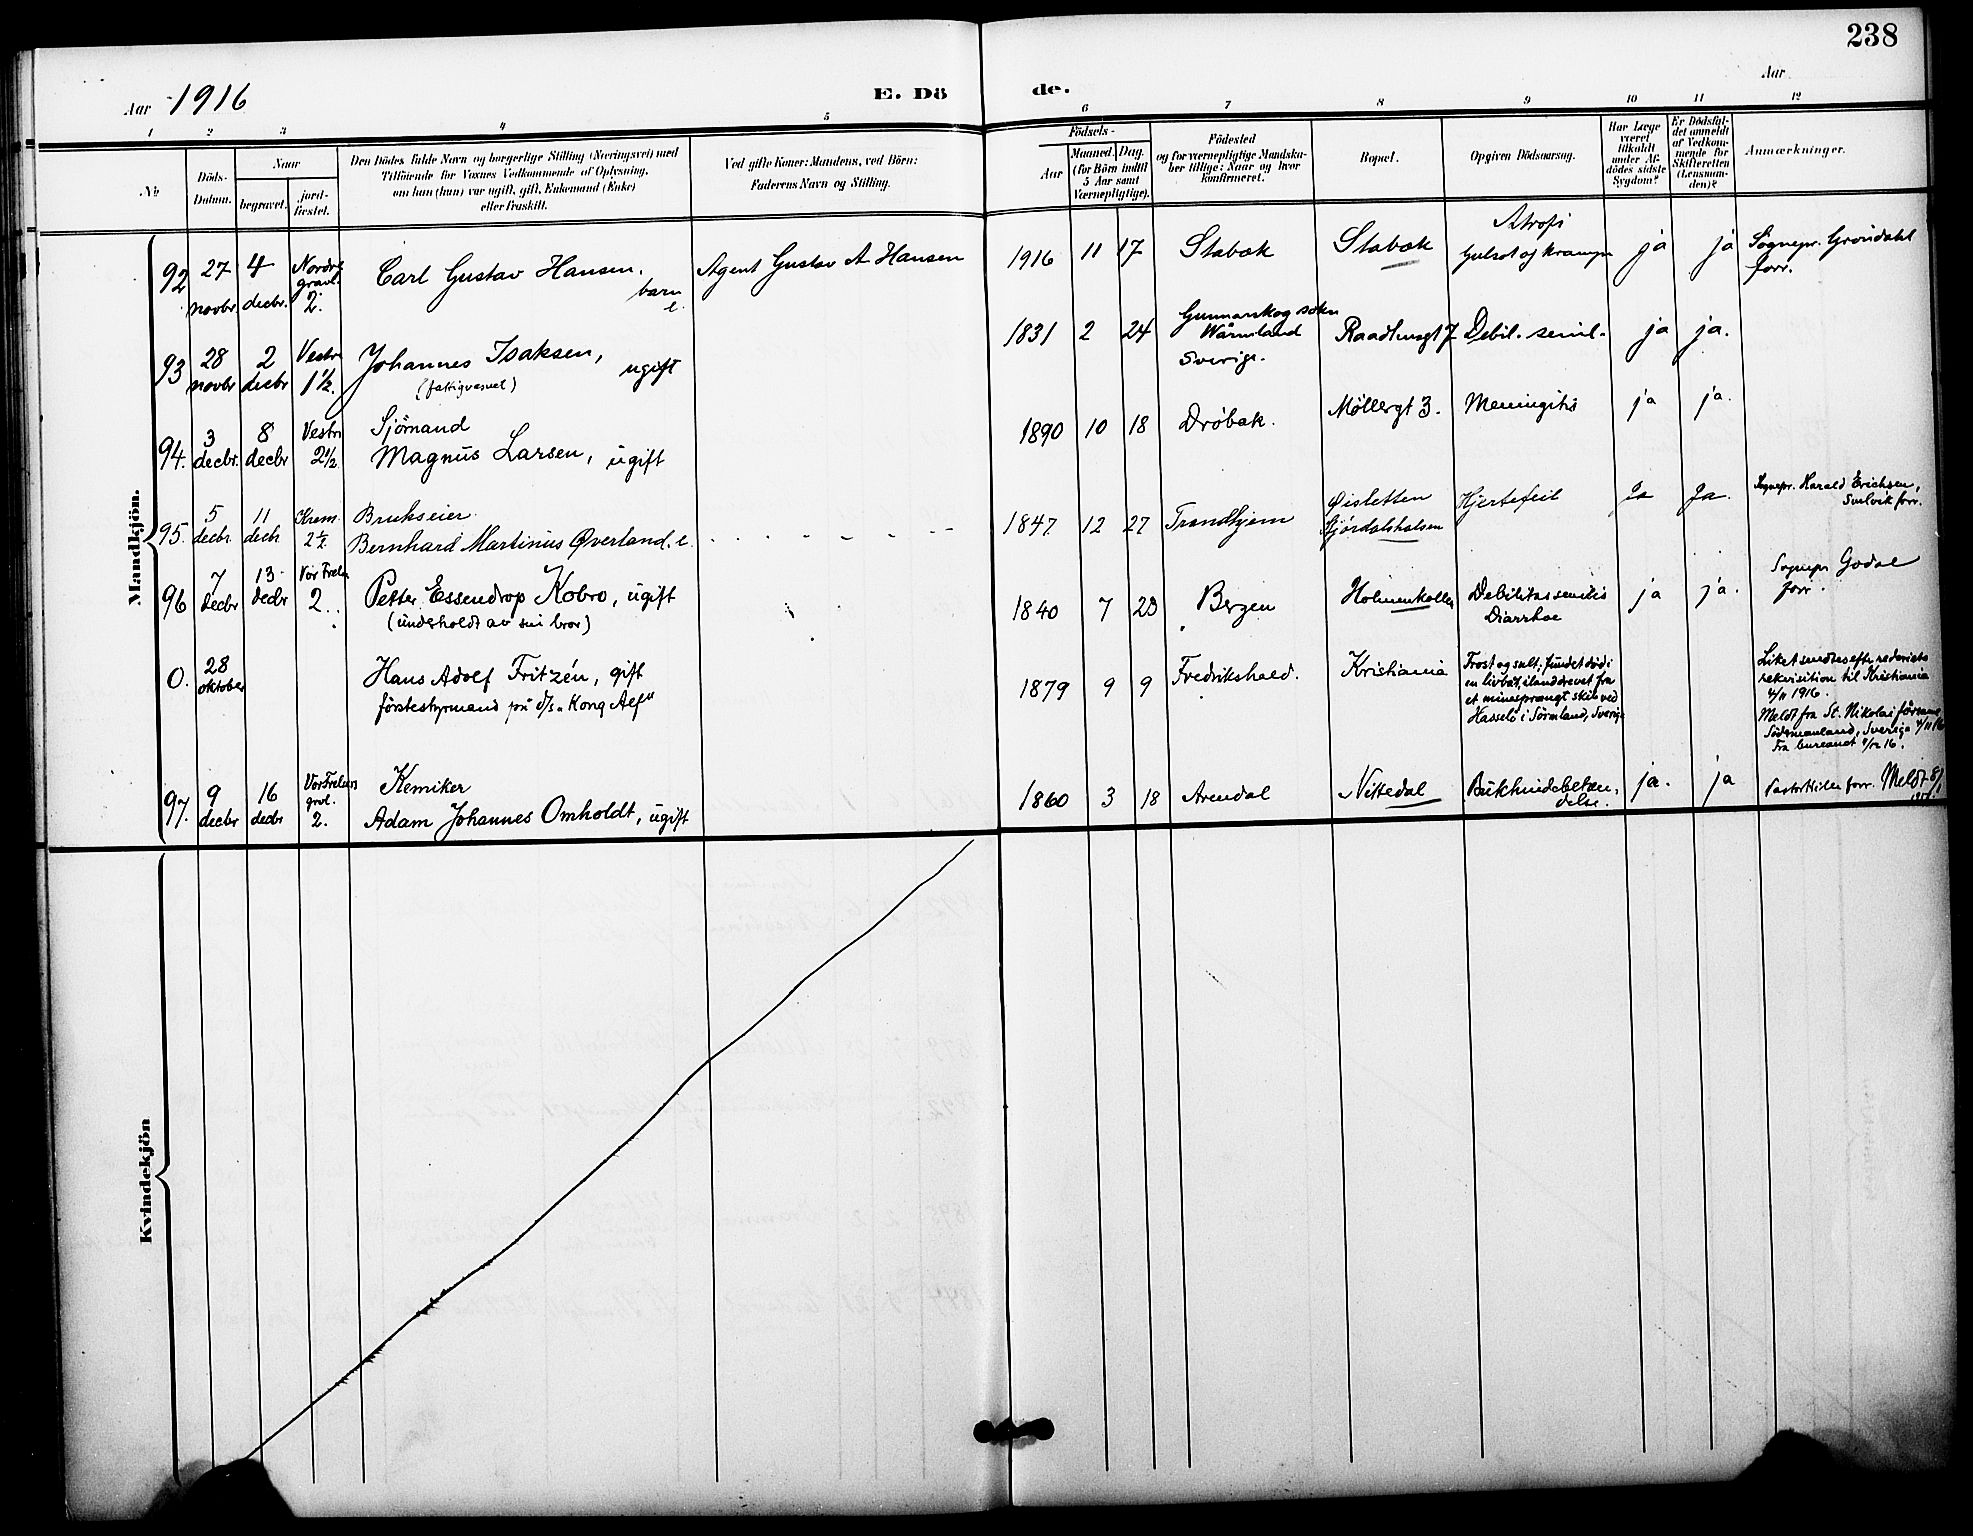 238
Aar 1916
E. Dö de.
Aar
1 2 3 4 5 6 7 8 9 10 11 12
No
Döds-
Datum.
Naar
begravet.
jord-
fæstet.
Den Dödes fulde Navn og borgerlige Stilling (Næringsvei) med
Tilföiende for Voxnes Vedkommende af Oplysning,
om han (hun) var ugift, gift, Enkemand (Enke)
eller fraskilt.
Ved gifte Koner: Mandens, ved Börn:
Faderens Navn og Stilling.
Födsels-
Aar
Maaned. Dag.
(for Börn indtil
5 Aar samt
Værnepligtige).
Födested
og for værnepligtige Mandska-
ber tillige: Naar og hvor
konfirmeret.
Bopæl.
Opgiven Dödsaarsag.
Har Læge
været
tilkaldt
under Af-
dödes sidste
Sygdom?
Er Dödsfal-
det anmeldt
af Vedkom-
mende for
Skifteretten
(Lensman-
den)?
Anmærkninger.
Mandkjön.
92
27
novbr
4
decbr.
Nordre
gravl.
2.
Carl Gustav Hansen,
barn
e.
Agent Gustav A Hansen
1916 11 17
Stabæk
Stabæk
Atrofi
Gulsot og krampe
ja
ja
Sognepr. Grøndahl
forr.
93
28
novbr
2
decbr
Vestre
1½.
Johannes Isaksen,
ugift
(fattigvæsnet)
1831 2 24
Gunnarskog sokn
Wärmland
Sverige.
Raadhusgt 7
Debil. senil.
ja
ja.
94.
3
decbr.
8
decbr
Vestre
2½
Sjömand
Magnus Larsen, ugift
1890 10 18
Drøbak.
Møllergt 3.
Meningitis
ja
ja.
95.
5
decbr.
11
decb.
Krem.
2½
Brukseier
Bernhard Martinius Øverland. e.
1847 12 27
Trondhjem
Øisletten
Stjørdalshalsen
Hjertefeil
Ja
Ja.
Sognepr. Harald Erichsen,
Svelvik forr.
96
7
decbr
13
decbr
Vor Frels
2.
Petter Essendrop Kobro, ugift
(underholdt av sin bror)
1840 7 23
Bergen
Holmenkollen
Debilitas senilis
Diarrhoe
ja
ja.
Sognepr Godal
forr.
0.
28
oktober
Hans Adolf Fritzén, gift
förstestyrmand på d/s „Kong Alf“
1879 9 9
Fredrikshald.
Kristiania
Frost og sult; fundet död i
en livbåt, ilanddrevet fra
et minesprængt skib ved
Hasselö i Sörmland, Sverige
Liket sendtes efter rederiets
rekvisition til Kristiania
4/11 1916.
Meldt fra St. Nikolai församl.
Södermanland, Sverige
Fra bureauet
97.
9
decbr
16
decbr
Vor Frelsers
gravl.
2.
Kemiker
Adam Johannes Omholdt, ugift
1860 3 18
Arendal
Nittedal
Bukhindebetæn-
delse.
ja.
ja
Pastor Hiller forr. Meldt 8/1
Kvindekjön